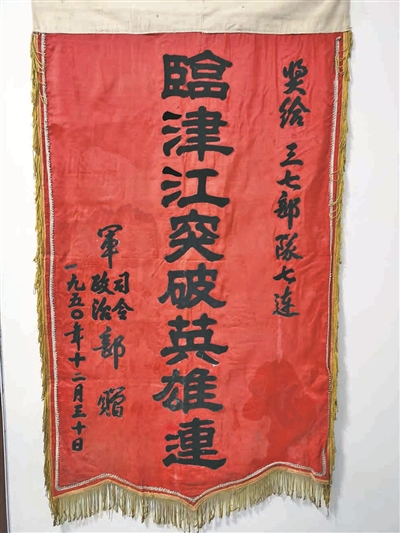 奖给三七部队七连
臨津江突破英雄連
軍司令政治部贈
一九五〇年十二月三十日